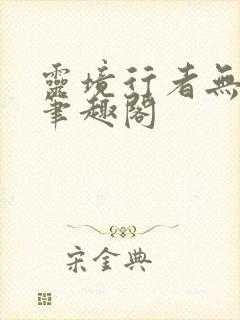 靈境行者無
筆趣閣
宋金典